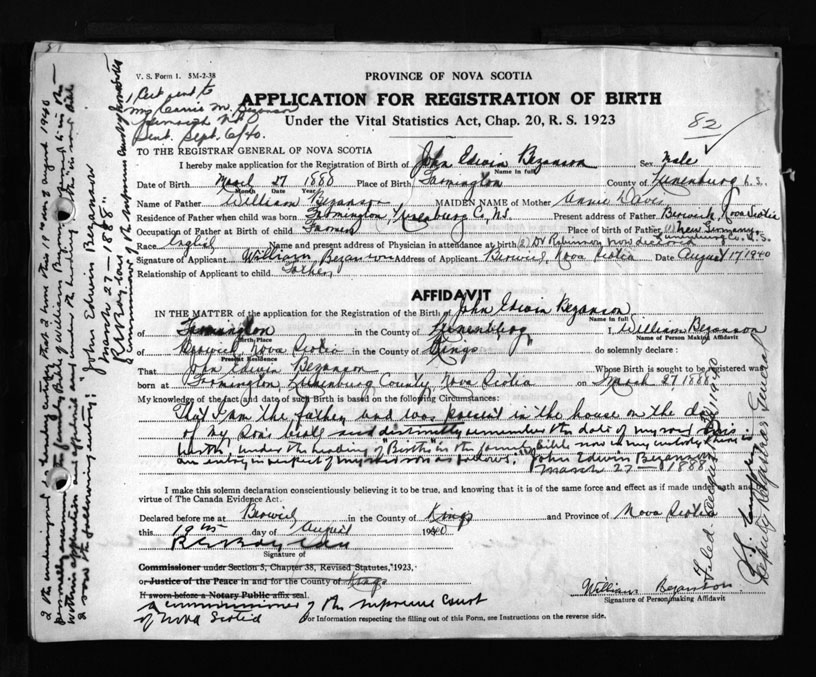 V. S. Form 1. 5M-2-38
PROVINCE OF NOVA SCOTIA
APPLICATION FOR REGISTRATION OF BIRTH
Under the Vital Statistics Act, Chap. 20, R. S. 1923
82
sent to
Mrs Carrie M. Bezanson
Sept. 6/40.
TO THE REGISTRAR GENERAL OF NOVA SCOTIA
I hereby make application for the Registration of Birth of John Edwin Bezanson Sex Male
Name in full
Date of Birth March 27 1888 Place of Birth Farmington County of Lunenburg N.S.
Month Date Year
Name of Father William Bezanson MAIDEN NAME of Mother Annie
Residence of Father when child was born Farmington, Lunenburg Co, N.S. Present address of Father Berwick, Nova Scotia
Occupation of Father at Birth of child Farmer Place of birth of Father New Germany, Lunenburg Co. N.S.
Race English Name and present address of Physician in attendance at birth Dr Robinson now deceased
Signature of Applicant William Bezanson Address of Applicant Berwick, Nova Scotia Date August 17 1940
Relationship of Applicant to child Father
AFFIDAVIT
IN THE MATTER of the application for the registration of birth of John Edwin Bezanson
Name in full
of Farmington in the County of Lunenburg I, William Bezanson
Birth Place Name of Person Making Affidavit
of Berwick, Nova Scotia in the County of Kings do solemnly declare:
Present Residence
That John Edwin Bezanson Whose Birth is sought to be registered was
born at Farmington, Lunenburg County, Nova Scotia on March 27 1888
My knowledge of the fact and date of such Birth is based on the following Circumstances:
That I am the father and was present in the house on the day
of my son's birth and distinctly remember the date of my son's
birth under the heading of "Births" in the family bible now in my custody there is
an entry in respect of my said son as follows: "John Edwin Bezanson
March 27 — 1888"
I make this solemn declaration conscientiously believing it to be true, and knowing that it is of the same force and effect as if made under oath and
virtue of The Canada Evidence Act.
Declared before me at Berwick in the County of Kings and Province of Nova Scotia
this 19th day of August 1940
Signature of
Commissioner under Section 5, Chapter 38, Revised Statutes, 1923,
or Justice of the Peace in and for the County of Kings
If sworn before a Notary Public affix seal.
a commissioner of the supreme court
of Nova Scotia
William Bezanson
Signature of Person making Affidavit
For Information respecting the filling out of this Form, see Instructions on the reverse side.
Filed August 1940
Deputy Registrar General
I the undersigned do hereby certify that I have this 19 day of August 1940
personally examined the family Bible of William Bezanson
within application and affidavit and under the heading of
I saw the following entry:
"John Edwin Bezanson
March 27 — 1888"
a Commissioner of the Supreme Court of Nova Scotia